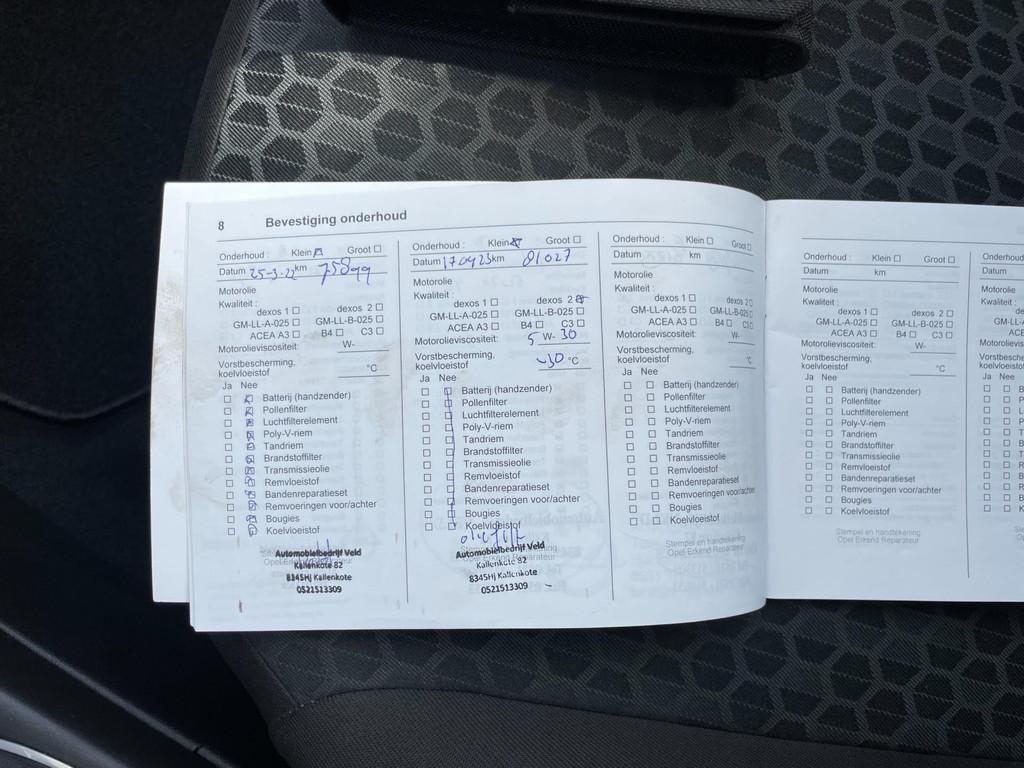 8 Bevestiging onderhoud
Onderhoud : Klein ☒ Groot ☐
Datum 25-3-22 km 75899
Motorolie
Kwaliteit :
dexos 1 ☐ dexos 2 ☐
GM-LL-A-025 ☐ GM-LL-B-025 ☐
ACEA A3 ☐ B4 ☐ C3 ☐
Motorolieviscositeit: W-
Vorstbescherming,
koelvloeistof °C
Ja Nee
☐ ☒ Batterij (handzender)
☐ ☒ Pollenfilter
☐ ☒ Luchtfilterelement
☐ ☒ Poly-V-riem
☐ ☒ Tandriem
☐ ☒ Brandstoffilter
☐ ☒ Transmissieolie
☐ ☒ Remvloeistof
☐ ☒ Bandenreparatieset
☐ ☒ Remvoeringen voor/achter
☐ ☒ Bougies
☐ ☒ Koelvloeistof
Automobielbedrijf Veld
Kallenkote 82
8345HJ Kallenkote
0521513309
Onderhoud : Klein ☒ Groot ☐
Datum 170423 km 81027
Motorolie
Kwaliteit :
dexos 1 ☐ dexos 2 ☒
GM-LL-A-025 ☐ GM-LL-B-025 ☐
ACEA A3 ☐ B4 ☐ C3 ☐
Motorolieviscositeit: 5 W- 30
Vorstbescherming,
koelvloeistof -30 °C
Ja Nee
☐ ☐ Batterij (handzender)
☐ ☐ Pollenfilter
☐ ☐ Luchtfilterelement
☐ ☐ Poly-V-riem
☐ ☐ Tandriem
☐ ☐ Brandstoffilter
☐ ☐ Transmissieolie
☐ ☐ Remvloeistof
☐ ☐ Bandenreparatieset
☐ ☐ Remvoeringen voor/achter
☐ ☐ Bougies
☐ ☐ Koelvloeistof
Automobielbedrijf Veld
Opel Erkend Reparateur
Kallenkote 82
8345HJ Kallenkote
0521513309
Onderhoud : Klein ☐ Groot ☐
Datum km
Motorolie
Kwaliteit :
dexos 1 ☐ dexos 2 ☐
GM-LL-A-025 ☐ GM-LL-B-025 ☐
ACEA A3 ☐ B4 ☐ C3 ☐
Motorolieviscositeit: W-
Vorstbescherming,
koelvloeistof °C
Ja Nee
☐ ☐ Batterij (handzender)
☐ ☐ Pollenfilter
☐ ☐ Luchtfilterelement
☐ ☐ Poly-V-riem
☐ ☐ Tandriem
☐ ☐ Brandstoffilter
☐ ☐ Transmissieolie
☐ ☐ Remvloeistof
☐ ☐ Bandenreparatieset
☐ ☐ Remvoeringen voor/achter
☐ ☐ Bougies
☐ ☐ Koelvloeistof
Stempel en handtekening
Opel Erkend Reparateur
Onderhoud : Klein ☐ Groot ☐
Datum km
Motorolie
Kwaliteit :
dexos 1 ☐ dexos 2 ☐
GM-LL-A-025 ☐ GM-LL-B-025 ☐
ACEA A3 ☐ B4 ☐ C3 ☐
Motorolieviscositeit: W-
Vorstbescherming,
koelvloeistof °C
Ja Nee
☐ ☐ Batterij (handzender)
☐ ☐ Pollenfilter
☐ ☐ Luchtfilterelement
☐ ☐ Poly-V-riem
☐ ☐ Tandriem
☐ ☐ Brandstoffilter
☐ ☐ Transmissieolie
☐ ☐ Remvloeistof
☐ ☐ Bandenreparatieset
☐ ☐ Remvoeringen voor/achter
☐ ☐ Bougies
☐ ☐ Koelvloeistof
Stempel en handtekening
Opel Erkend Reparateur
Datum
Motorolie